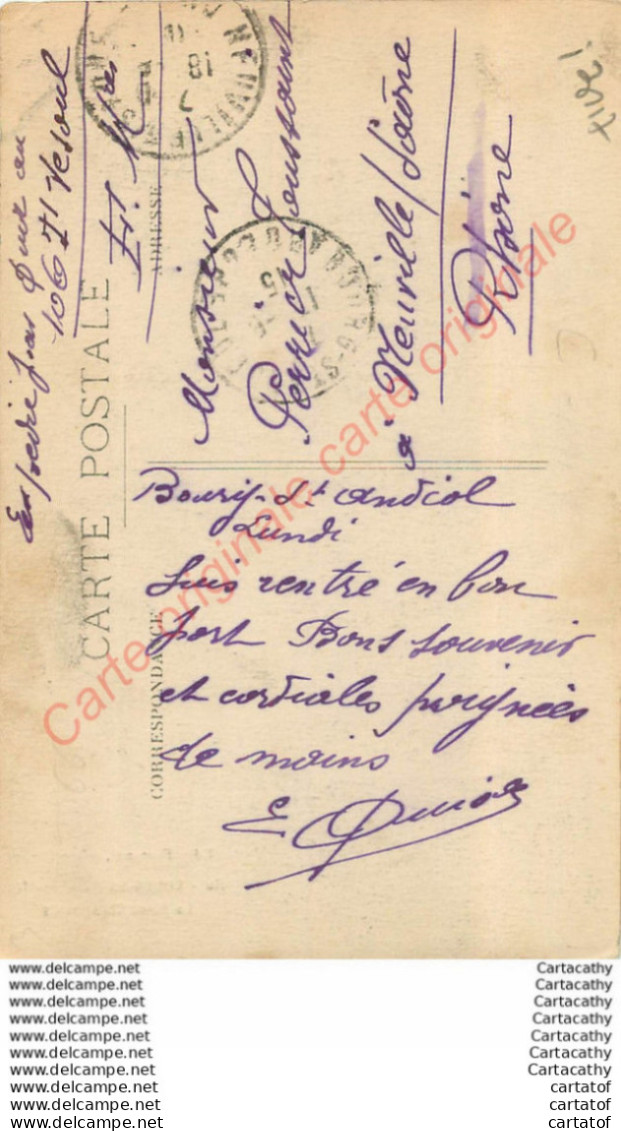 CARTE POSTALE
CORRESPONDANCE
ADRESSE
Bourg-St Andéol
Lundi
Suis rentré en bon
port Bons souvenirs
et cordiales poignées
de mains
E
Monsieur
Perrier Toussaint
à Neuville/Saône
Rhône
106 71 Vesoul
F. M.
Carte originale carte originale
www.delcampe.net
www.delcampe.net
www.delcampe.net
www.delcampe.net
www.delcampe.net
www.delcampe.net
www.delcampe.net
www.delcampe.net
www.delcampe.net
www.delcampe.net
Cartacathy
Cartacathy
Cartacathy
Cartacathy
Cartacathy
Cartacathy
Cartacathy
cartatof
cartatof
cartatof